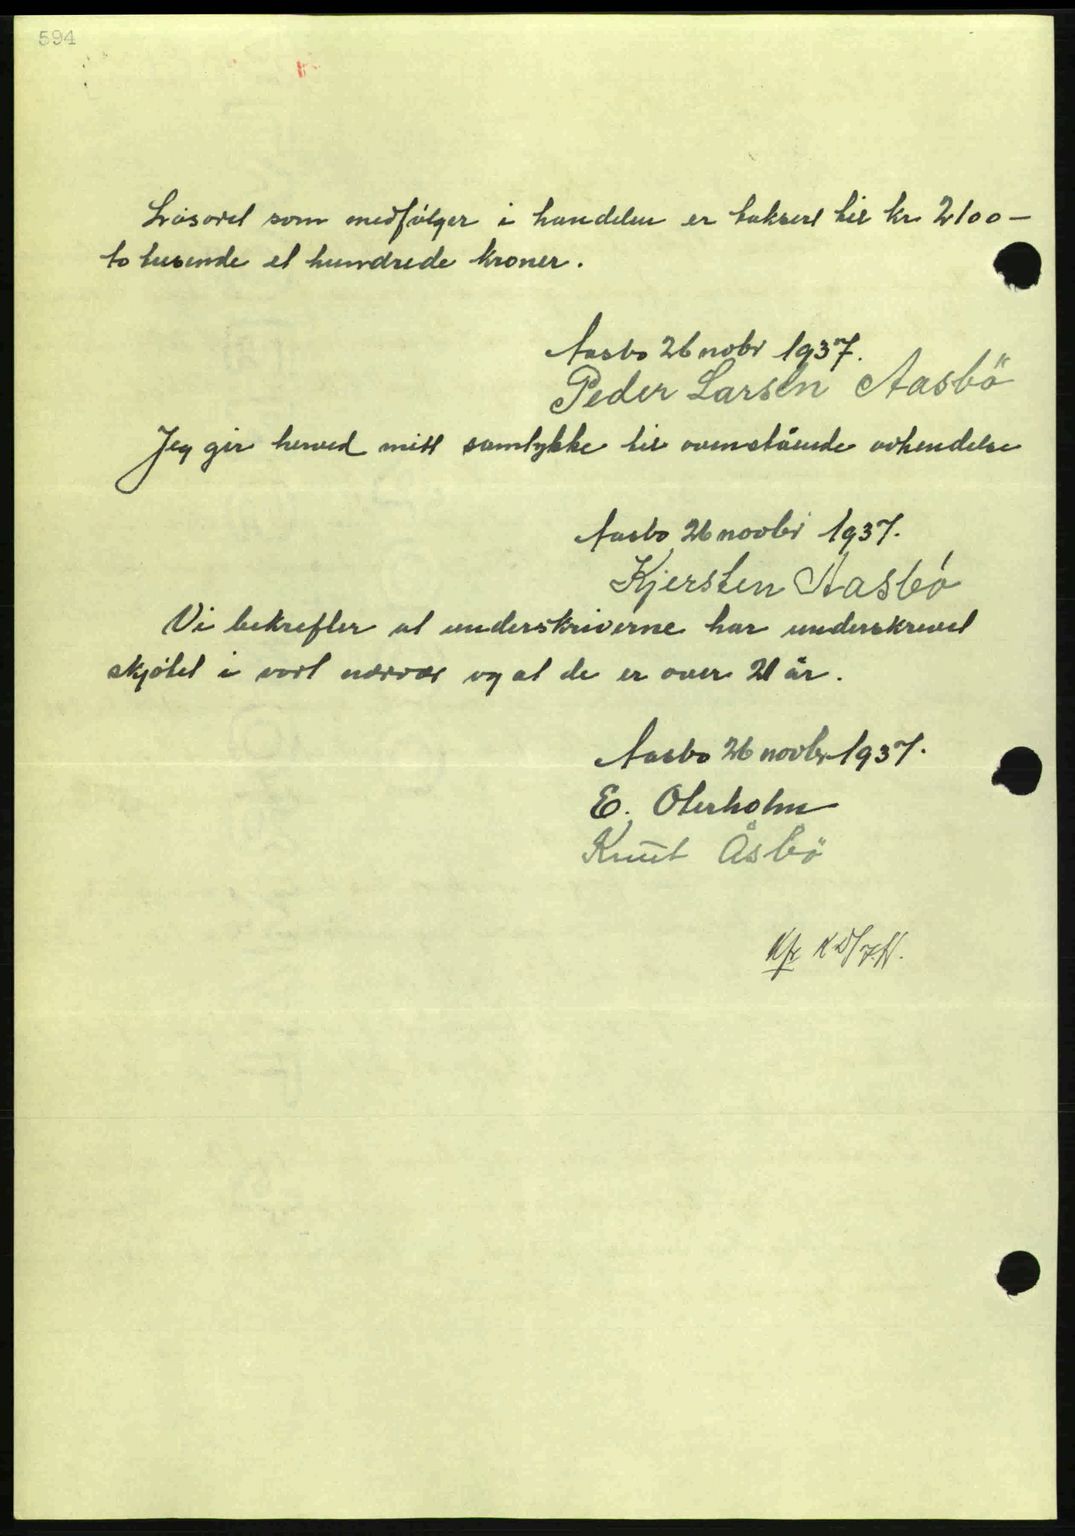 594
Løsøret som medfølger i handelen er taksert til kr 2100 –
to tusende et hundrede kroner.
Aasbø 26 nobr 1937.
Peder Larsen Aasbö
Jeg gir herved mitt samtykke til ovenstående avhendelse
Aasbø 26 novbr 1937.
Kjersten Aasbø
Vi bekrefter at underskriverne har underskrevet
skjøtet i vort nærvær og at de er over 21 år.
Aasbø 26 novbr 1937.
E. Oterholm
Knut Åsbö